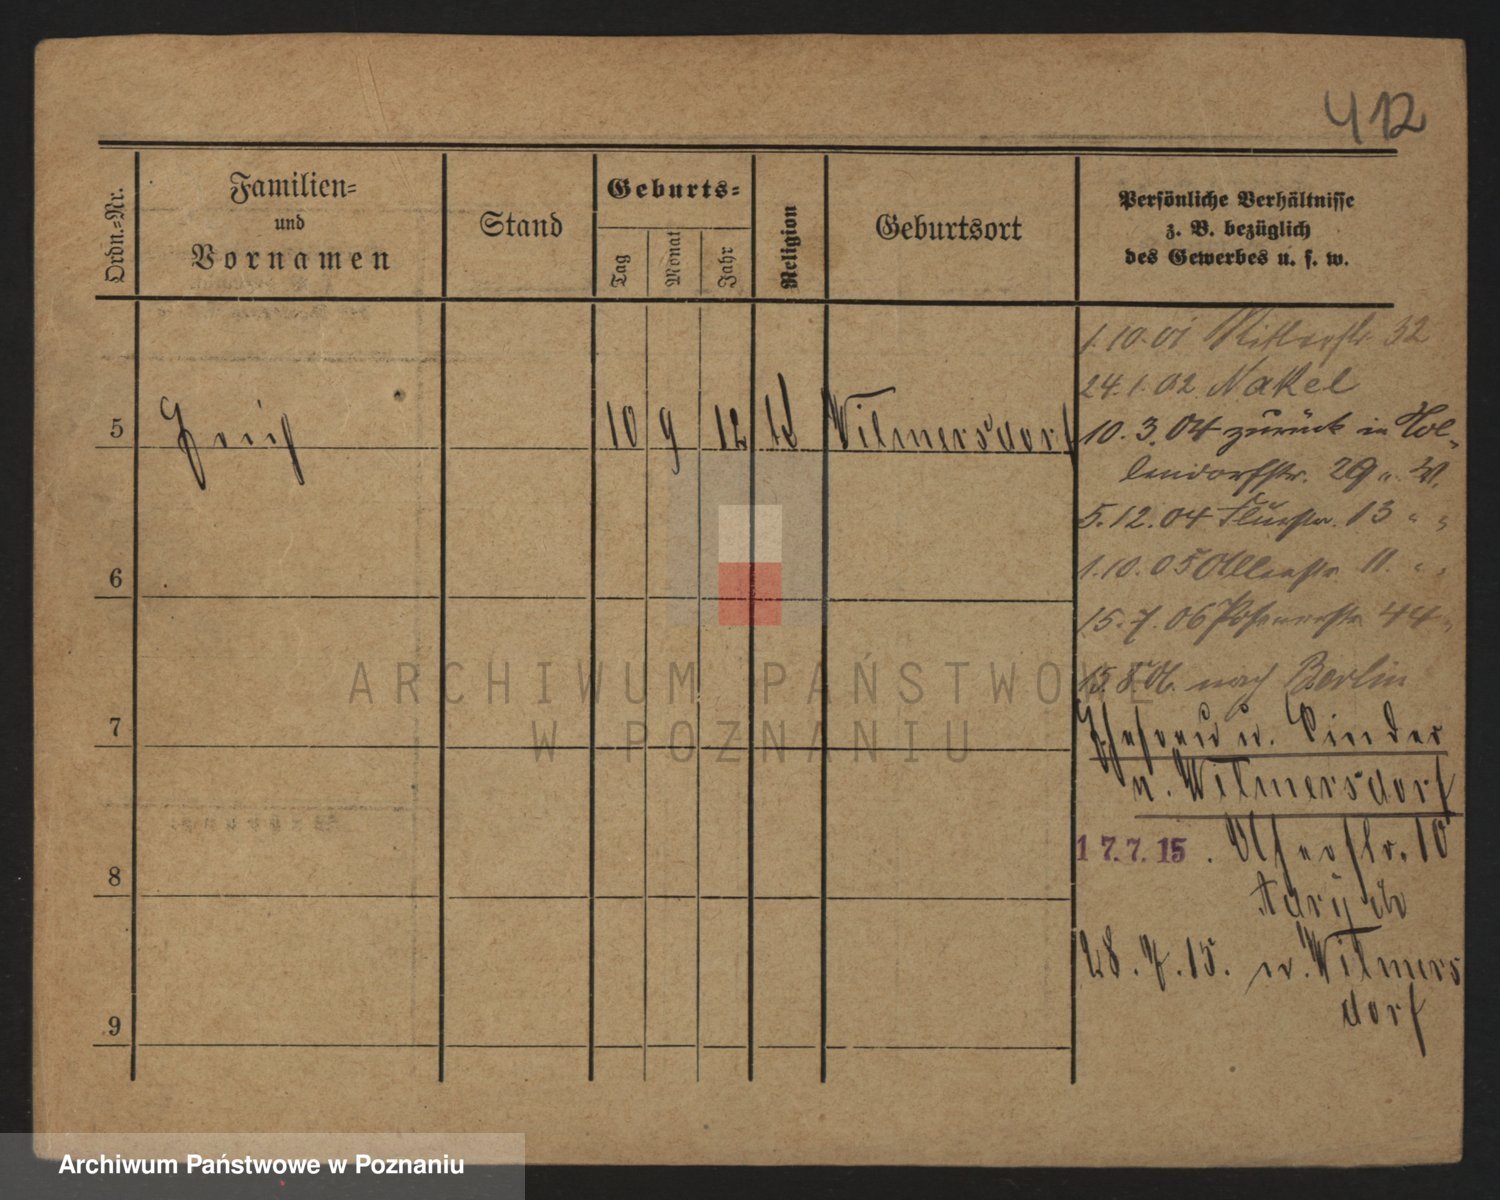 412
Ordn.-Nr.
Familien-
und
Vornamen
Stand
Geburts-
Tag
Monat
Jahr
Religion
Geburtsort
Persönliche Verhältnisse
z. B. bezüglich
des Gewerbes u. s. w.
1.10.01 32
24.1.02. Nakel
5
10 9 12 Wilmersdorf
10.3.04 zurück in Hol-
lendorfstr. 29 W.
5.12.04 Flurstr. 13 " "
6
1.10.05 11. " "
15.7.06 Posenerstr. 44 "
15.8.06. nach Berlin
7
Ehefrau u. Kinder
n. Wilmersdorf
17.7.15. 10
8
28.7.15. n. Wilmers
dorf
9
ARCHIWUM PAŃSTWOWE
W POZNANIU
Archiwum Państwowe w Poznaniu